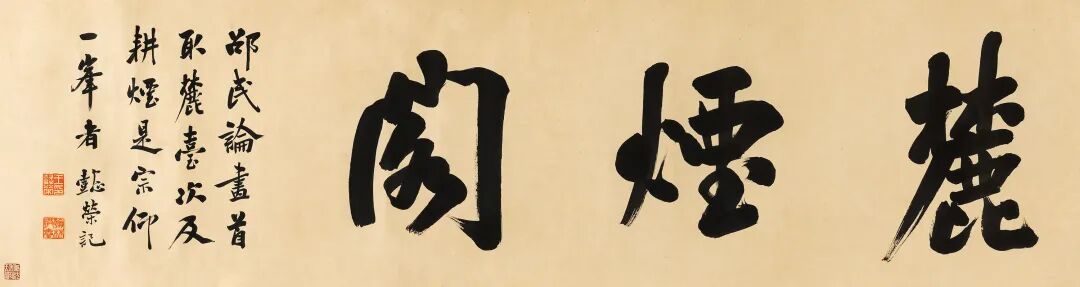 麓煙閣
邵民論畫首
取麓臺次及
耕煙是宗仰
一峯者 懿榮記